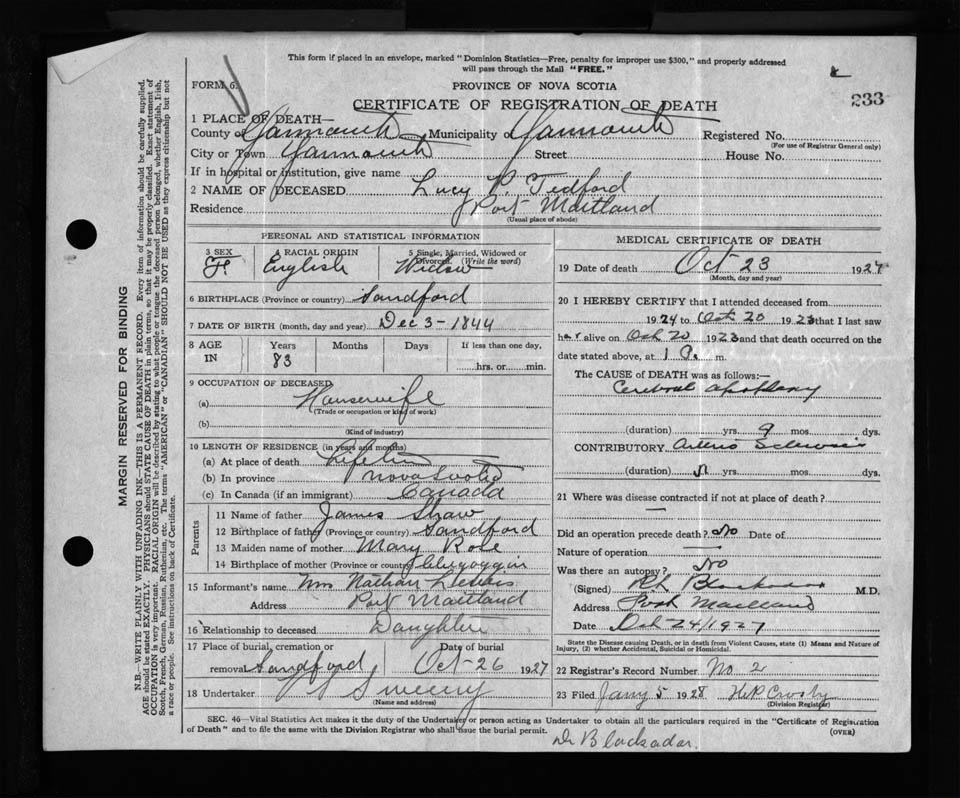 This form if placed in an envelope, marked "Dominion Statistics—Free, penalty for improper use $300," and properly addressed
will pass through the Mail "FREE."
FORM 6
PROVINCE OF NOVA SCOTIA
233
CERTIFICATE OF REGISTRATION OF DEATH
1 PLACE OF DEATH—
County of Yarmouth Municipality Yarmouth Registered No.
(For use of Registrar General only)
City or Town Yarmouth Street House No.
If in hospital or institution, give name
2 NAME OF DECEASED Lucy P. Tedford
Residence Port Maitland
(Usual place of abode)
PERSONAL AND STATISTICAL INFORMATION
3 SEX F
4 RACIAL ORIGIN English
5 Single, Married, Widowed or
Divorced. (Write the word)
Widow
6 BIRTHPLACE (Province or country) Sandford
7 DATE OF BIRTH (month, day and year) Dec 3-1844
8 AGE IN Years Months Days If less than one day,
83 hrs. or min.
9 OCCUPATION OF DECEASED
(a) Housewife
(Trade or occupation or kind of work)
(b)
(Kind of industry)
10 LENGTH OF RESIDENCE (in years and months)
(a) At place of death Lifetime
(b) In province Nova Scotia
(c) In Canada (if an immigrant) Canada
Parents
11 Name of father James Shaw
12 Birthplace of father (Province or country) Sandford
13 Maiden name of mother Mary Rose
14 Birthplace of mother (Province or country)
15 Informant's name Mrs Nathan
Address Port Maitland
16 Relationship to deceased Daughter
17 Place of burial, cremation or Date of burial
removal Sandford Oct-26 1927
18 Undertaker Sweeny
(Name and address)
MEDICAL CERTIFICATE OF DEATH
19 Date of death Oct 23 1927
(Month, day and year)
20 I HEREBY CERTIFY that I attended deceased from
1924 to Oct 20 1923 that I last saw
her alive on Oct 20 1923 and that death occurred on the
date stated above, at 1 m.
The CAUSE of DEATH was as follows:—
Cerebral apoplexy
(duration) yrs. 9 mos. dys.
CONTRIBUTORY Arterio Sclerosis
(duration) yrs. mos. dys.
21 Where was disease contracted if not at place of death?
—
Did an operation precede death? No Date of
Nature of operation —
Was there an autopsy? No
(Signed) M.D.
Address Port Maitland
Date Oct 24/1927
State the Disease causing Death, or in death from Violent Causes, state (1) Means and Nature of
Injury, (2) whether Accidental, Suicidal or Homicidal.
22 Registrar's Record Number No. 2
23 Filed Jany 5 1928 H.P. Crosby
(Division Registrar)
SEC. 46—Vital Statistics Act makes it the duty of the Undertaker or person acting as Undertaker to obtain all the particulars required in the "Certificate of Registration
of Death" and to file the same with the Division Registrar who shall issue the burial permit.
(OVER)
Dr Blackadar.
MARGIN RESERVED FOR BINDING
N.B.—WRITE PLAINLY WITH UNFADING INK—THIS IS A PERMANENT RECORD. Every item of information should be carefully supplied.
AGE should be stated EXACTLY. PHYSICIANS should STATE CAUSE OF DEATH in plain terms, so that it may be properly classified. Exact statement of
OCCUPATION is very important. RACIAL ORIGIN will be described by stating to what people or tongue the deceased person belonged, whether English, Irish,
Scotch, French, German, Russian, Ruthenian, etc. The terms "AMERICAN" or "CANADIAN" SHOULD NOT BE USED as they express citizenship but not
a race or people. See instructions on back of Certificate.